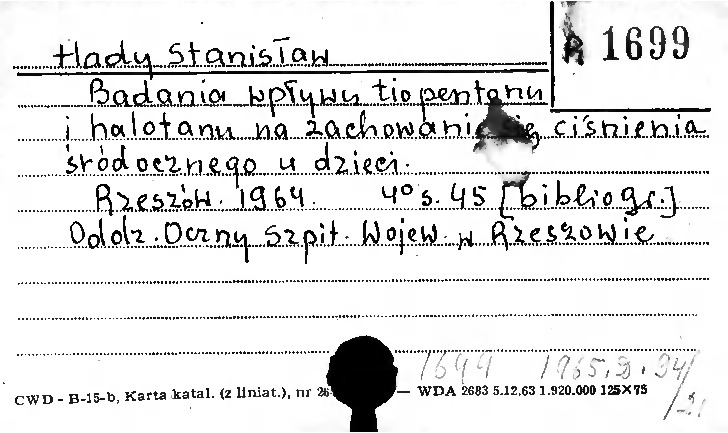 Hady Stanisław
R 1699
Badania wpływu tiopentanu
i halotanu na zachowanie się ciśnienia
śródocznego u dzieci.
Rzeszów. 1964. 4° s. 45 [bibliogr.]
Oddz. Oczny Szpit. Wojew. w Rzeszowie
1699 1965.D.94/
CWD - B-15-b, Karta katal. (z liniat.), nr 26 — WDA 2683 5.12.63 1.920.000 125×75